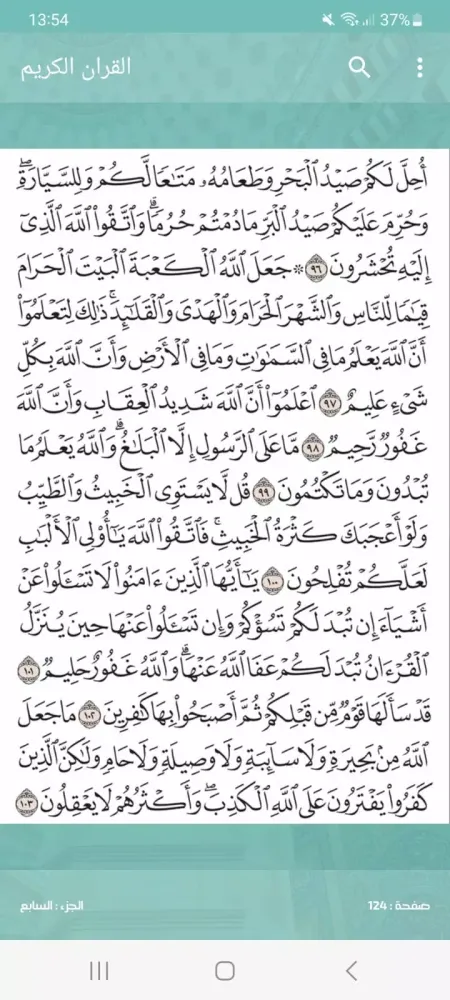 13:54
37%
القران الكريم
أُحِلَّ لَكُمْ صَيْدُ الْبَحْرِ وَطَعَامُهُۥ مَتَٰعًا لَّكُمْ وَلِلسَّيَّارَةِۖ
وَحُرِّمَ عَلَيْكُمْ صَيْدُ الْبَرِّ مَا دُمْتُمْ حُرُمًاۗ وَاتَّقُوا۟ اللَّهَ الَّذِىٓ
إِلَيْهِ تُحْشَرُونَ ٩٦ ۞ جَعَلَ اللَّهُ الْكَعْبَةَ الْبَيْتَ الْحَرَامَ
قِيَٰمًا لِّلنَّاسِ وَالشَّهْرَ الْحَرَامَ وَالْهَدْىَ وَالْقَلَٰٓئِدَۚ ذَٰلِكَ لِتَعْلَمُوٓا۟
أَنَّ اللَّهَ يَعْلَمُ مَا فِى السَّمَٰوَٰتِ وَمَا فِى الْأَرْضِ وَأَنَّ اللَّهَ بِكُلِّ
شَىْءٍ عَلِيمٌ ٩٧ اعْلَمُوٓا۟ أَنَّ اللَّهَ شَدِيدُ الْعِقَابِ وَأَنَّ اللَّهَ
غَفُورٌ رَّحِيمٌ ٩٨ مَّا عَلَى الرَّسُولِ إِلَّا الْبَلَٰغُۗ وَاللَّهُ يَعْلَمُ مَا
تُبْدُونَ وَمَا تَكْتُمُونَ ٩٩ قُل لَّا يَسْتَوِى الْخَبِيثُ وَالطَّيِّبُ
وَلَوْ أَعْجَبَكَ كَثْرَةُ الْخَبِيثِۚ فَاتَّقُوا۟ اللَّهَ يَٰٓأُو۟لِى الْأَلْبَٰبِ
لَعَلَّكُمْ تُفْلِحُونَ ١٠٠ يَٰٓأَيُّهَا الَّذِينَ ءَامَنُوا۟ لَا تَسْـَٔلُوا۟ عَنْ
أَشْيَآءَ إِن تُبْدَ لَكُمْ تَسُؤْكُمْ وَإِن تَسْـَٔلُوا۟ عَنْهَا حِينَ يُنَزَّلُ
الْقُرْءَانُ تُبْدَ لَكُمْ عَفَا اللَّهُ عَنْهَاۗ وَاللَّهُ غَفُورٌ حَلِيمٌ ١٠١
قَدْ سَأَلَهَا قَوْمٌ مِّن قَبْلِكُمْ ثُمَّ أَصْبَحُوا۟ بِهَا كَٰفِرِينَ ١٠٢ مَا جَعَلَ
اللَّهُ مِنۢ بَحِيرَةٍ وَلَا سَآئِبَةٍ وَلَا وَصِيلَةٍ وَلَا حَامٍ وَلَٰكِنَّ الَّذِينَ
كَفَرُوا۟ يَفْتَرُونَ عَلَى اللَّهِ الْكَذِبَۖ وَأَكْثَرُهُمْ لَا يَعْقِلُونَ ١٠٣
صفحة : 124
الجزء : السابع